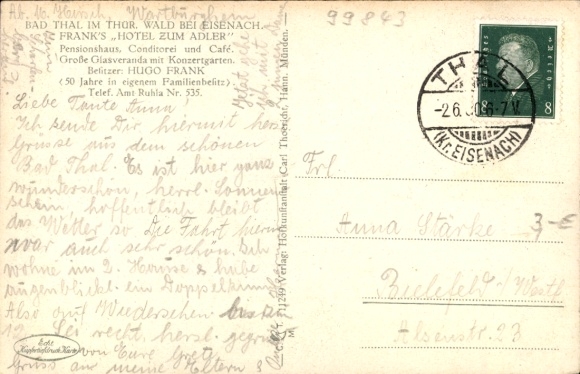 Ab 16. Hirsch, Wartburgheim
BAD THAL IM THÜR. WALD BEI EISENACH.
FRANK'S „HOTEL ZUM ADLER"
Pensionshaus, Conditorei und Café.
Große Glasveranda mit Konzertgarten.
Besitzer: HUGO FRANK
(50 Jahre in eigenem Familienbesitz)
Telef. Amt Ruhla Nr. 535.
Liebe Tante Anna!
Ich sende Dir hiermit herzl.
Grüsse aus dem schönen
Bad Thal. Es ist hier ganz
wunderschön, herrl. Sonnen
schein, hoffentlich bleibt
das Wetter so. Die Fahrt hierin
war auch sehr schön. Ich
wohne im 2. Hause & habe
augenblickl. ein Doppelzimm.
Also auf Wiedersehen bis
12. Sei recht herzl. gegrüßt
von Eure Grete
Gruss an meine Eltern
Echt
Kupfertiefdruck-Karte
M
1249 Verlag: Hofkunstanstalt Carl Thoericht, Hann. Münden.
99843
DEUTSCHES REICH
8 8
THAL
-2.6.30.6-7 V.
(Kr. EISENACH)
Frl.
Anna Stärke
3,-€
Bielefeld i/Westf.
Alsenstr. 23